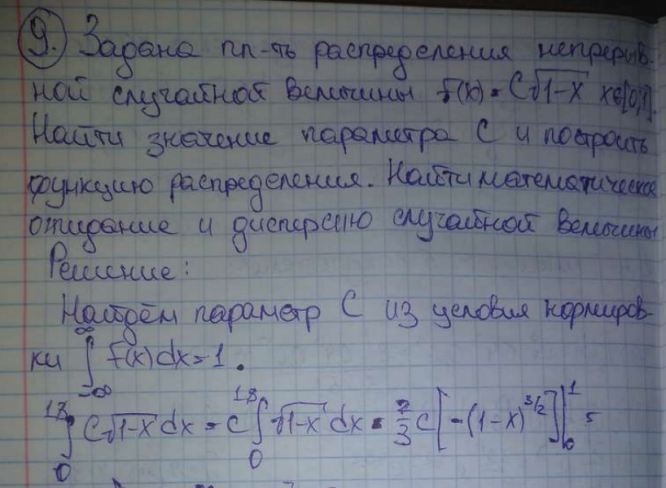 9. Задана пл-ть распределения непрерыв-
ной случайной величины f(x) = C√1-x x∈[0,1].
Найти значение параметра C и построить
функцию распределения. Найти математическое
ожидание и дисперсию случайной величины
Решение:
Найдём параметр C из условия нормиров-
ки ∫_{-∞}^{∞} f(x)dx=1.
∫_0 C√1-x dx = C ∫_0 √1-x dx = 2/3 C [-(1-x)^{3/2}]|_0^1 =